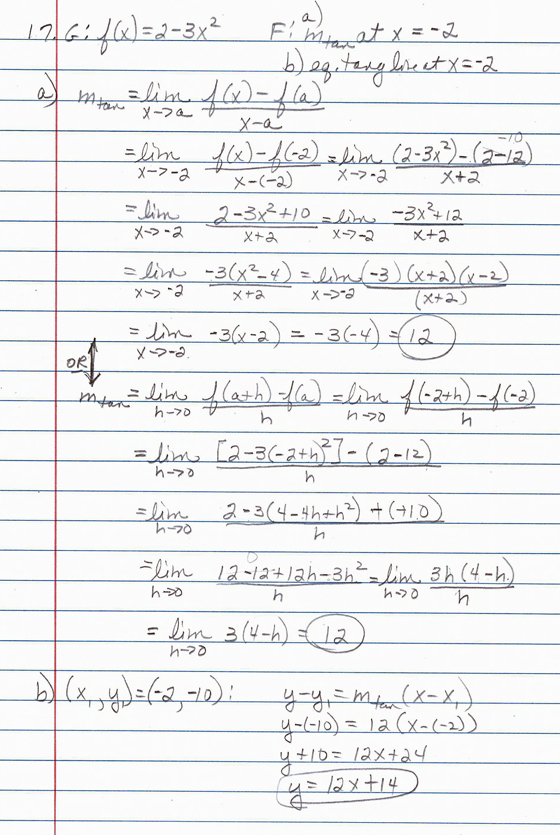 17. G: f(x) = 2-3x² F: a) m_tan at x = -2
b) eq. tang line at x = -2
a) m_tan = lim x->a (f(x) - f(a))/(x-a)
= lim x->-2 (f(x) - f(-2))/(x-(-2)) = lim x->-2 ((2-3x²) - (2-12))/(x+2) -10
= lim x->-2 (2-3x²+10)/(x+2) = lim x->-2 (-3x²+12)/(x+2)
= lim x->-2 (-3(x²-4))/(x+2) = lim x->-2 ((-3)(x+2)(x-2))/((x+2))
= lim x->-2 -3(x-2) = -3(-4) = 12
OR
m_tan = lim h->0 (f(a+h) - f(a))/h = lim h->0 (f(-2+h) - f(-2))/h
= lim h->0 ([2-3(-2+h)²] - (2-12))/h
= lim h->0 (2-3(4-4h+h²) + (+10))/h
= lim h->0 (12-12+12h-3h²)/h 0 = lim h->0 (3h(4-h))/h
= lim h->0 3(4-h) = 12
b) (x₁, y₁) = (-2, -10): y-y₁ = m_tan (x-x₁)
y-(-10) = 12(x-(-2))
y+10 = 12x+24
y = 12x+14